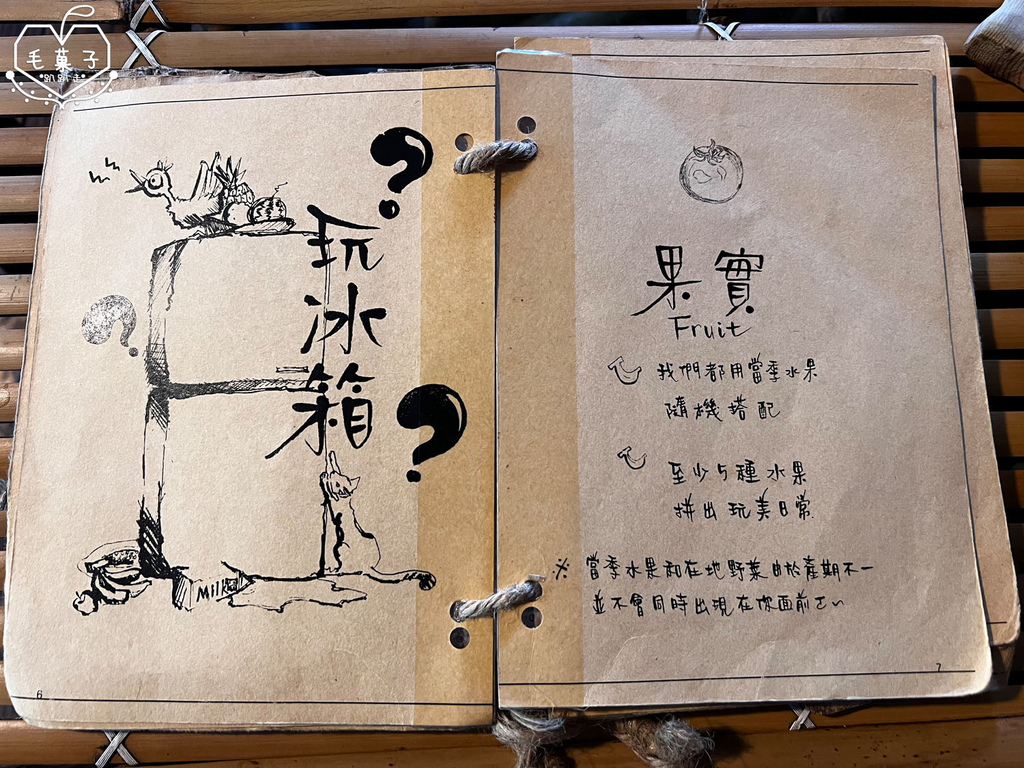 毛菓子
趴趴走
玩冰箱
Milk
6
果實
Fruit
我們都用當季水果
隨機搭配
至少5種水果
拼出玩美日常
※ 當季水果和在地野菜由於產期不一
並不會同時出現在你面前ㄛ~
7